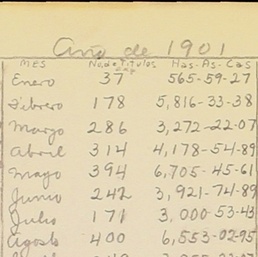 Año de 1901
MES No. de Titulos Has-As-Cas
Enero 37 565-59-27
Febrero 178 5,816-33-38
Marzo 286 3,272-22-07
Abril 314 4,178-54-89
Mayo 394 6,705-45-61
Junio 242 3,921-74-89
Julio 171 3,000-53-43
Agosto 400 6,553-02-95